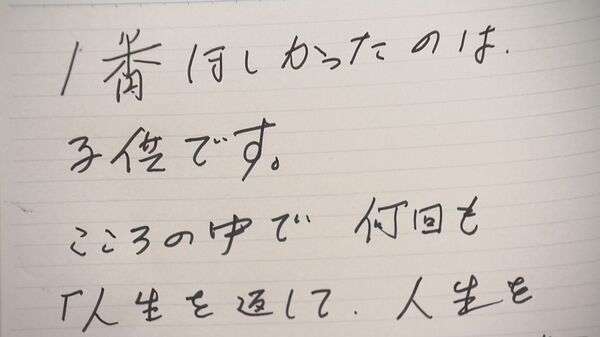 1番ほしかったのは、
子供です。
こころの中で 何回も
「人生を返して、人生を